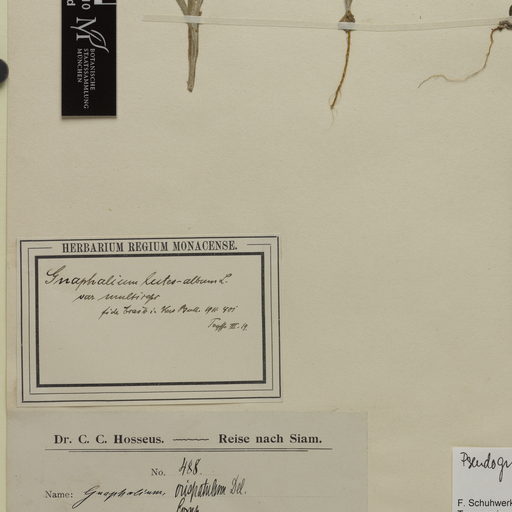 BOTANISCHE
STAATSSAMMLUNG
MÜNCHEN
HERBARIUM REGIUM MONACENSE.
Gnaphalium luteo-album L.
var multiceps
fide Craib in Kew Bull. 1911 401
III. 19.
Dr. C. C. Hosseus. Reise nach Siam.
No. 488
Name: Gnaphalium crispatulum Del.
Comp.
Pseudogn
F. Schuhwerk